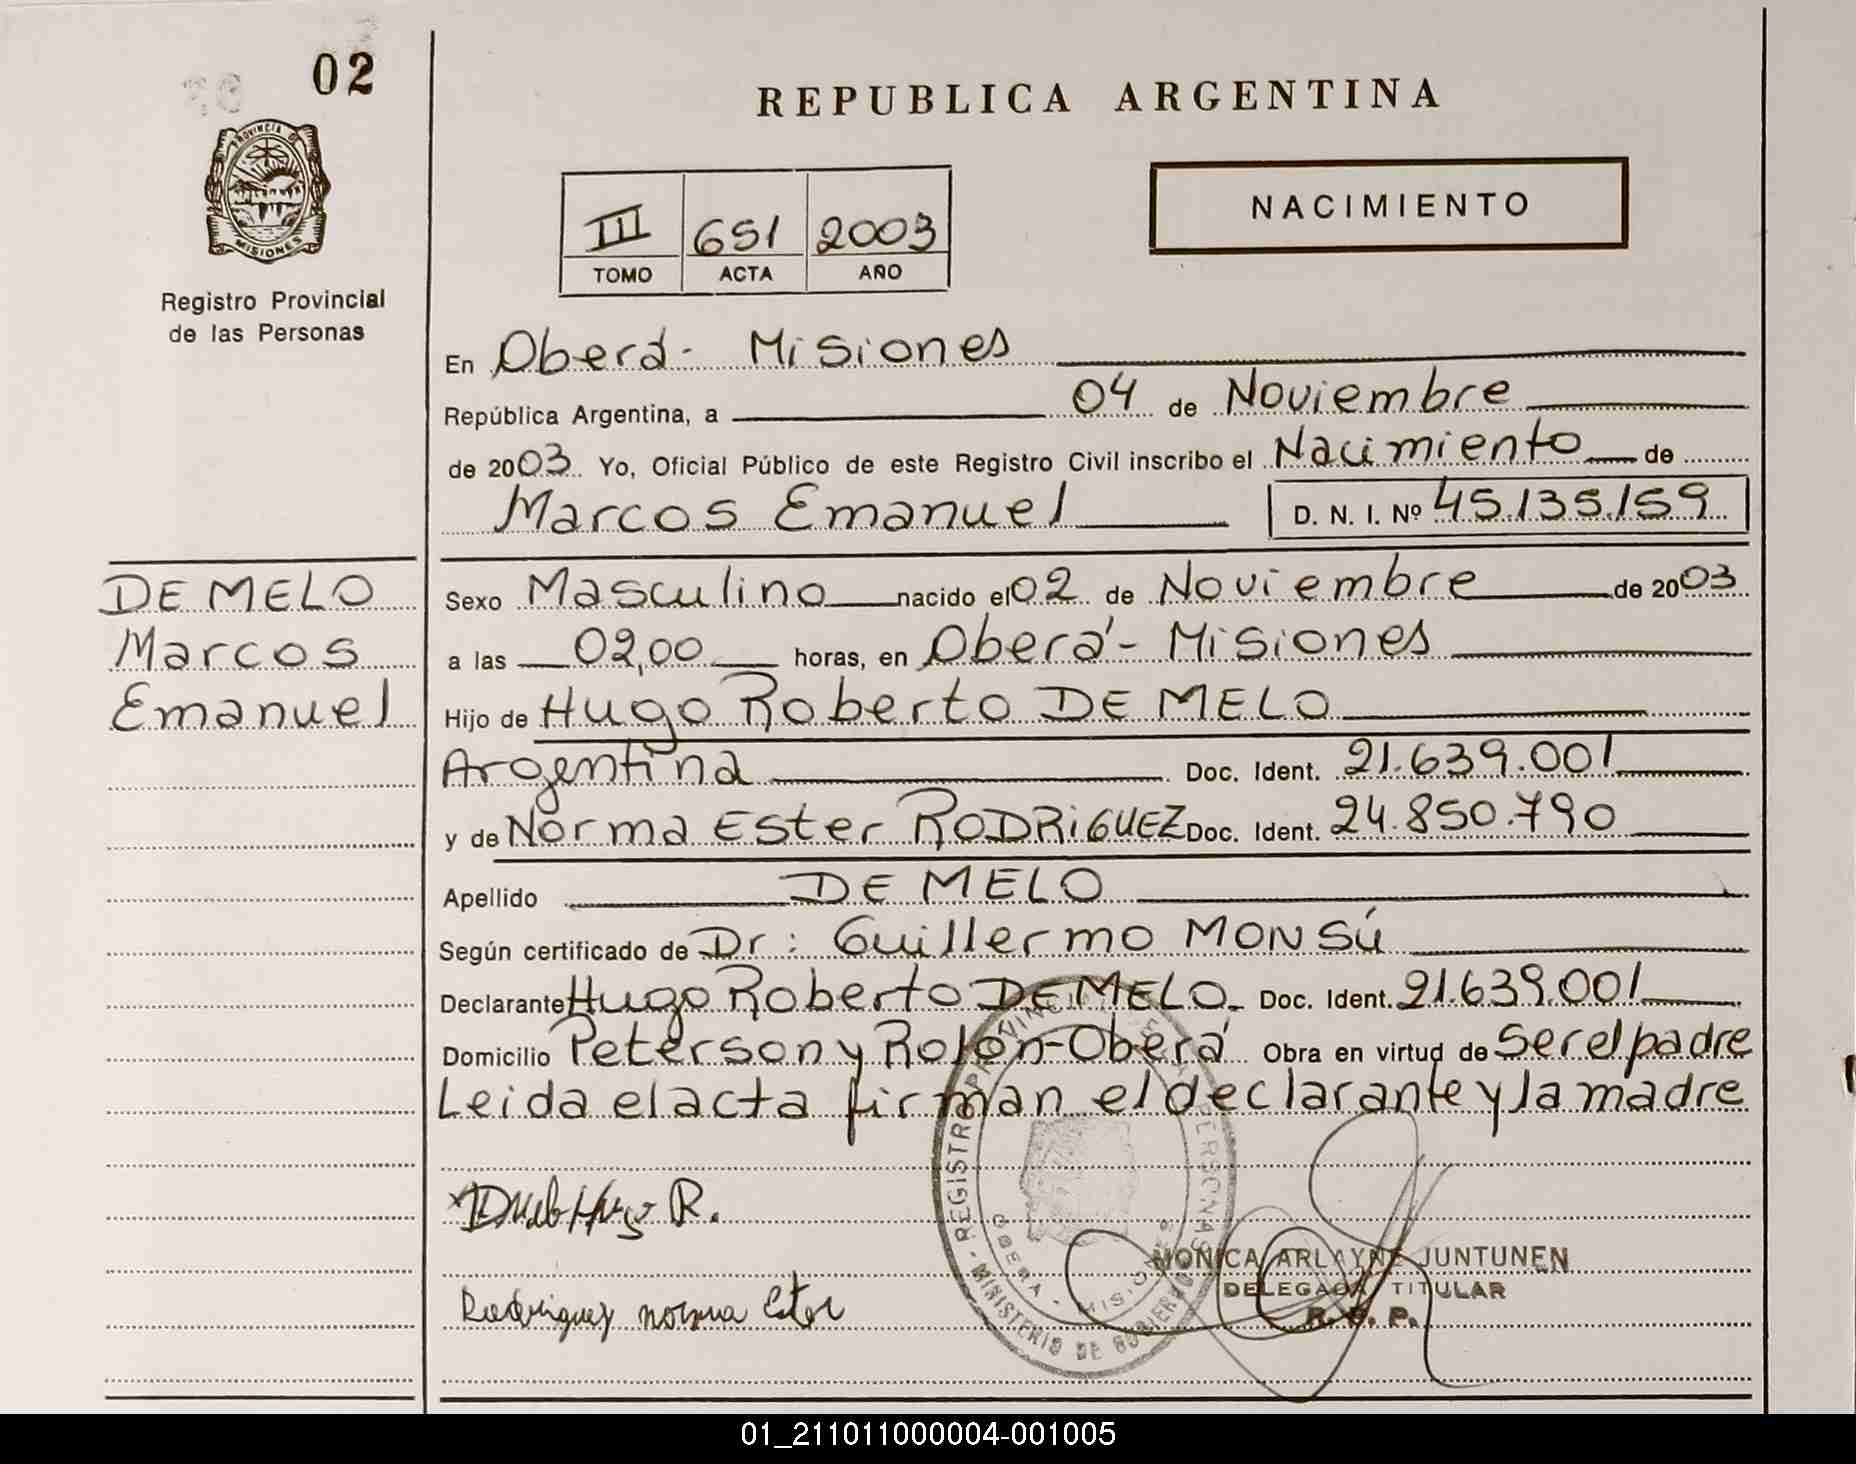 02
REPUBLICA ARGENTINA
PROVINCIA DE
MISIONES
Registro Provincial
de las Personas
III 651 2003
TOMO ACTA AÑO
NACIMIENTO
En Oberá - Misiones
República Argentina, a 04 de Noviembre
de 2003 Yo, Oficial Público de este Registro Civil inscribo el Nacimiento de
Marcos Emanuel D. N. I. Nº 45.135.159
DE MELO
Marcos
Emanuel
Sexo Masculino nacido el 02 de Noviembre de 2003
a las 02,00 horas, en Oberá - Misiones
Hijo de Hugo Roberto DE MELO
Argentina Doc. Ident. 21.639.001
y de Norma Ester RODRiGUEZ Doc. Ident. 24.850.790
Apellido DE MELO
Según certificado de Dr: Guillermo MONSÚ
Declarante Hugo Roberto DE MELO Doc. Ident. 21.639.001
Domicilio Peterson y Rolón - Oberá Obra en virtud de Ser el padre
Leida el acta firman el declarante y la madre
Hugo R.
Rodriguez norma Ester
REGISTRO PROVINCIAL DE LAS PERSONAS
MINISTERIO DE GOBIERNO
OBERA - MISIONES
MONICA ARLAYNE JUNTUNEN
DELEGADA TITULAR
R. P. P.
01_211011000004-001005